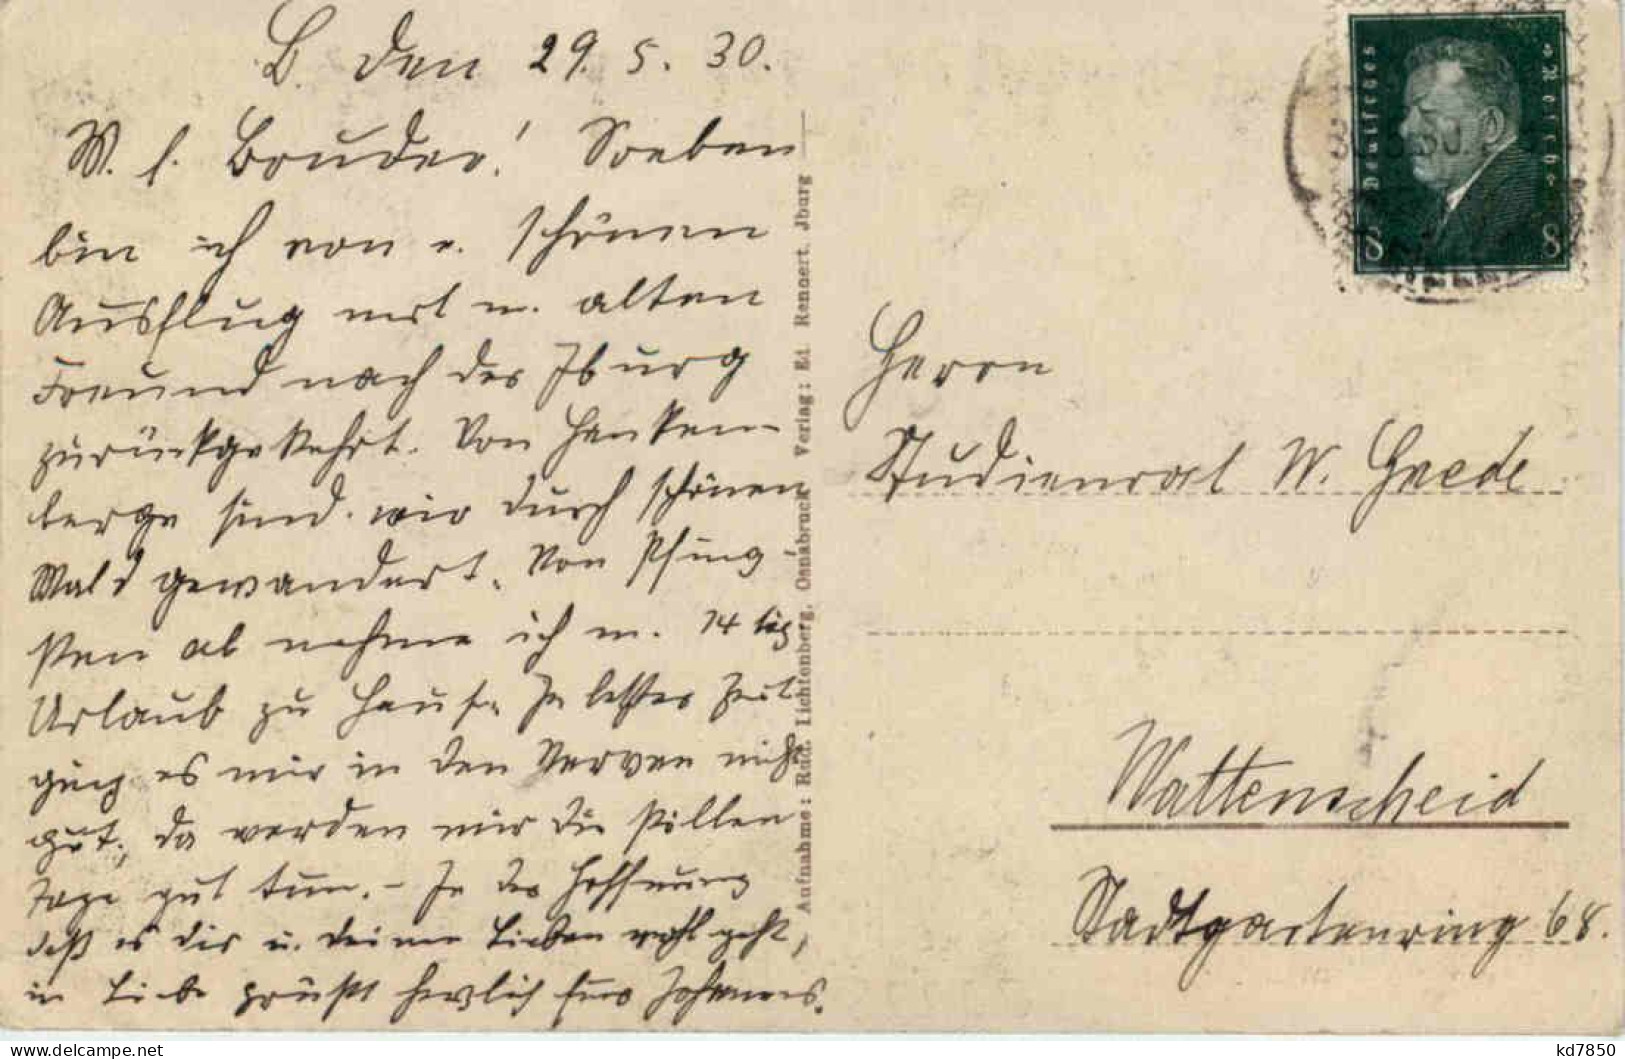 B. den 29. 5. 30.
M. l. Bruder! Soeben
bin ich von e. schönen
Ausflug mit m. alten
Freund nach der Iburg
zurückgekehrt. Von Hanken-
berge sind wir durch schönen
Wald gewandert. Von Pfing-
sten ab nehme ich m. 14 täg.
Urlaub zu Hause. In letzter Zeit
ging es mir in den Nerven nicht
gut, da werden mir die stillen
Tage gut tun. - In der Hoffnung
daß es dir u. deinen Lieben wohl geht,
in Liebe grüßt herzlich Euer Johannes.
Aufnahme: Rud. Lichtenberg, Osnabrück Verlag: Ed. Rennert. Jburg
Deutsches Reich
8 8
Herrn
Studienrat W. Gaede
Wattenscheid
Stadtgartenring 68.
kd7850